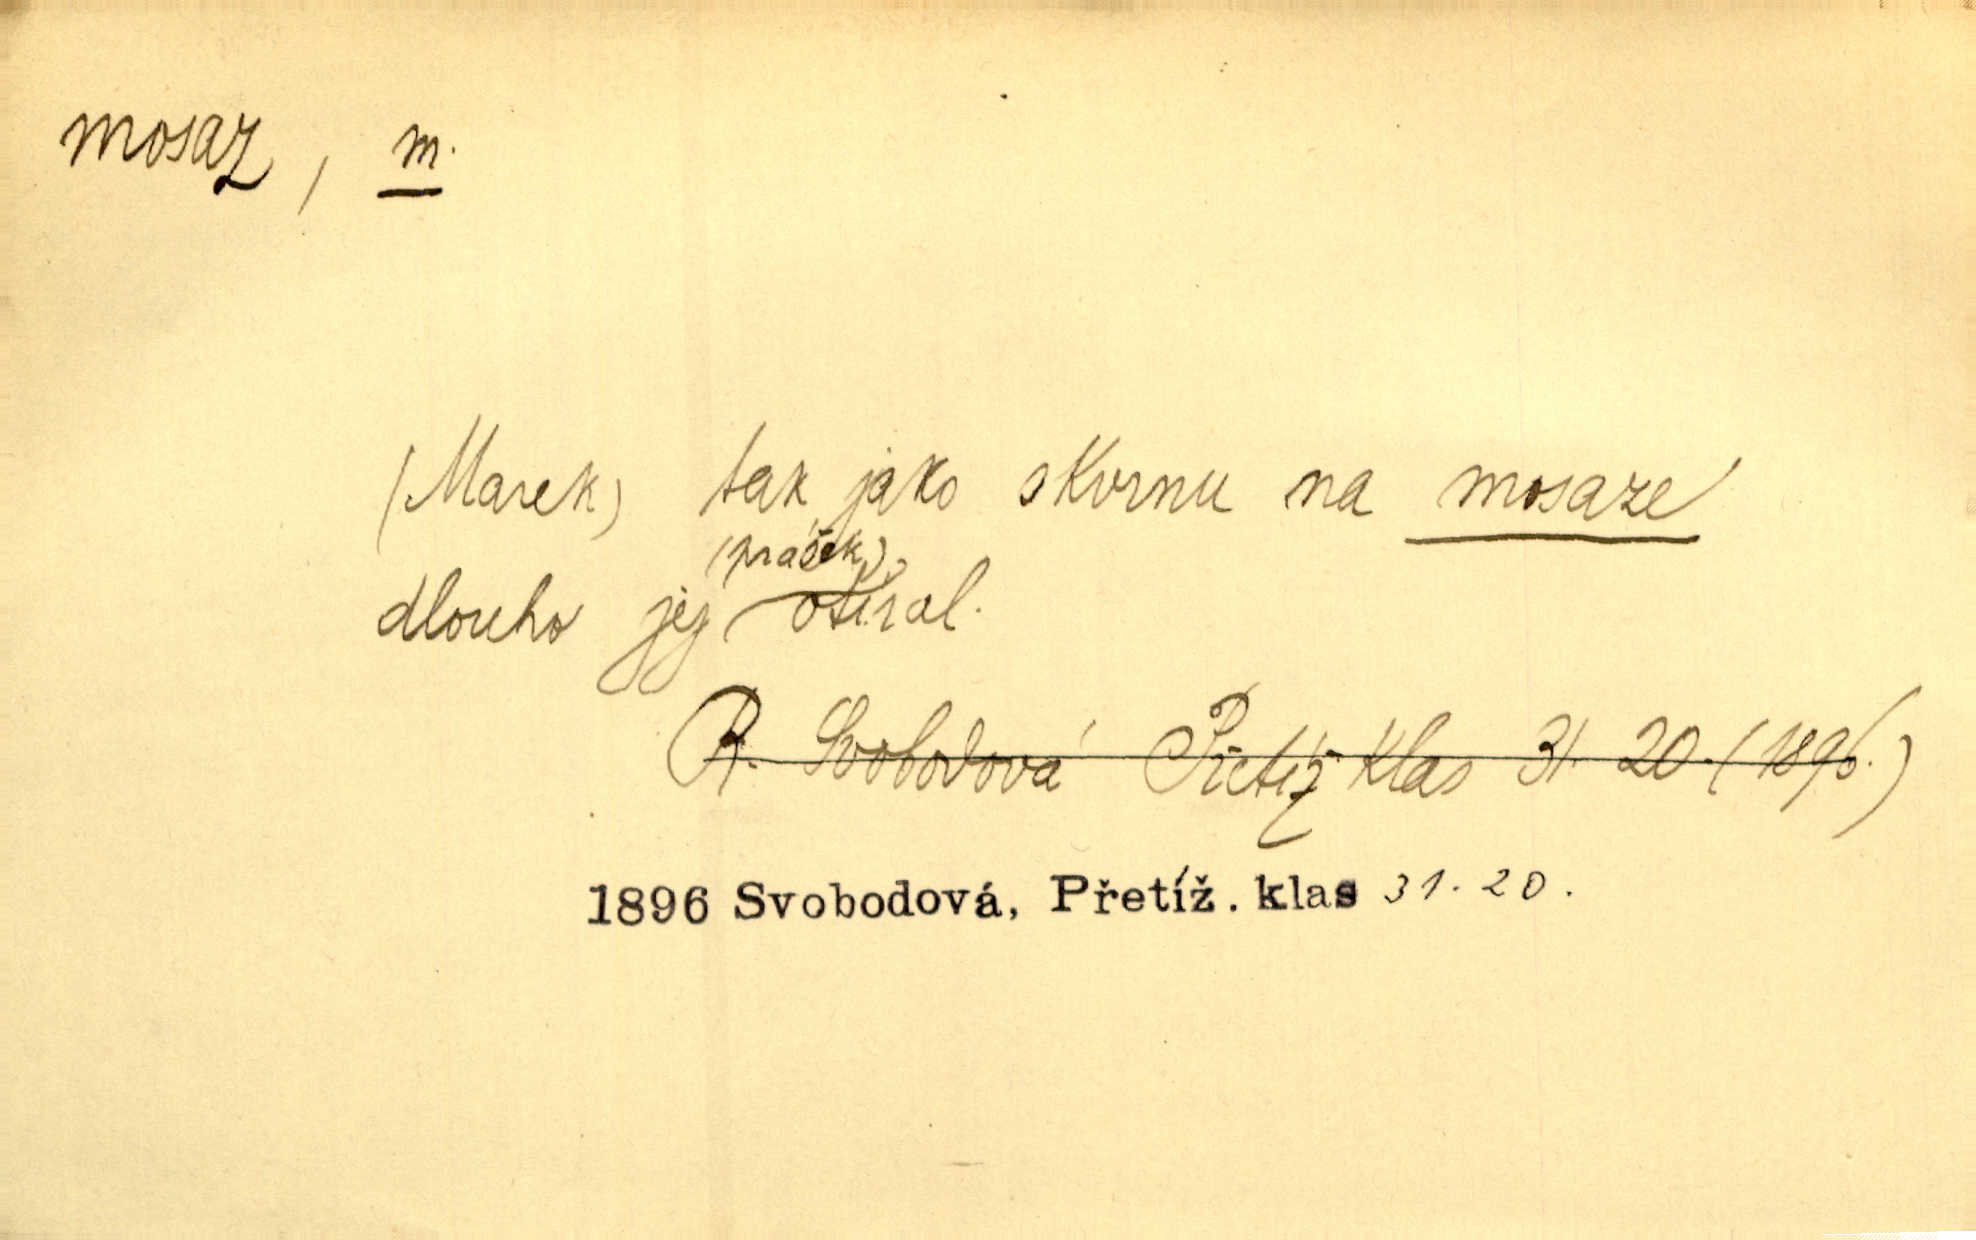 mosaz, m.
(Marek) tak jako skvrnu na mosaze
(prášek)
dlouho jej otíral.
R. Svobodová Přetíž. klas 31. 20. (1896.)
1896 Svobodová, Přetíž. klas 31. 20.